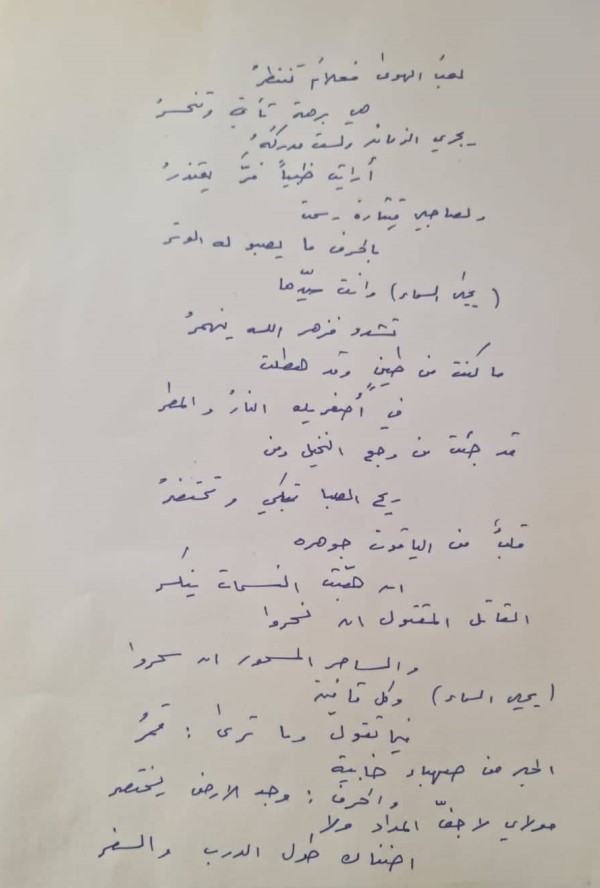 لعبَ الهوى فعلامَ تنتظرُ
هي برهة تأتي وتنحسرُ
يجري الزمانُ ولستَ مدركَهُ
أرأيت ظبياً فرَّ يعتذرُ
ولصاحبي قيثارة رسمت
بالحرف ما يصبو له الوتر
(يحيى السماوي) وأنت سيّدها
تشدو فزهر اللـه ينهمرُ
ما كنت من طينٍ وقد هطلت
في أصغريك النارُ والمطر
قد جئت من وجع النخيل ومن
ريح الصبا تبكي وتحتضرُ
قلبٌ من الياقوت جوهره
ان هبّت النسمات ينكسرُ
القاتل المقتول ان نحروا
والساحر المسحور ان سحروا
(يحيى السماوي) وكل قافية
فيما تقول وما ترى : قمرُ
الحبر من صهباء خابيةٍ
والحرف : وجد الارض يختصر
مولاي لا جفّ المداد ولا
اضناك طول الدرب والسفر